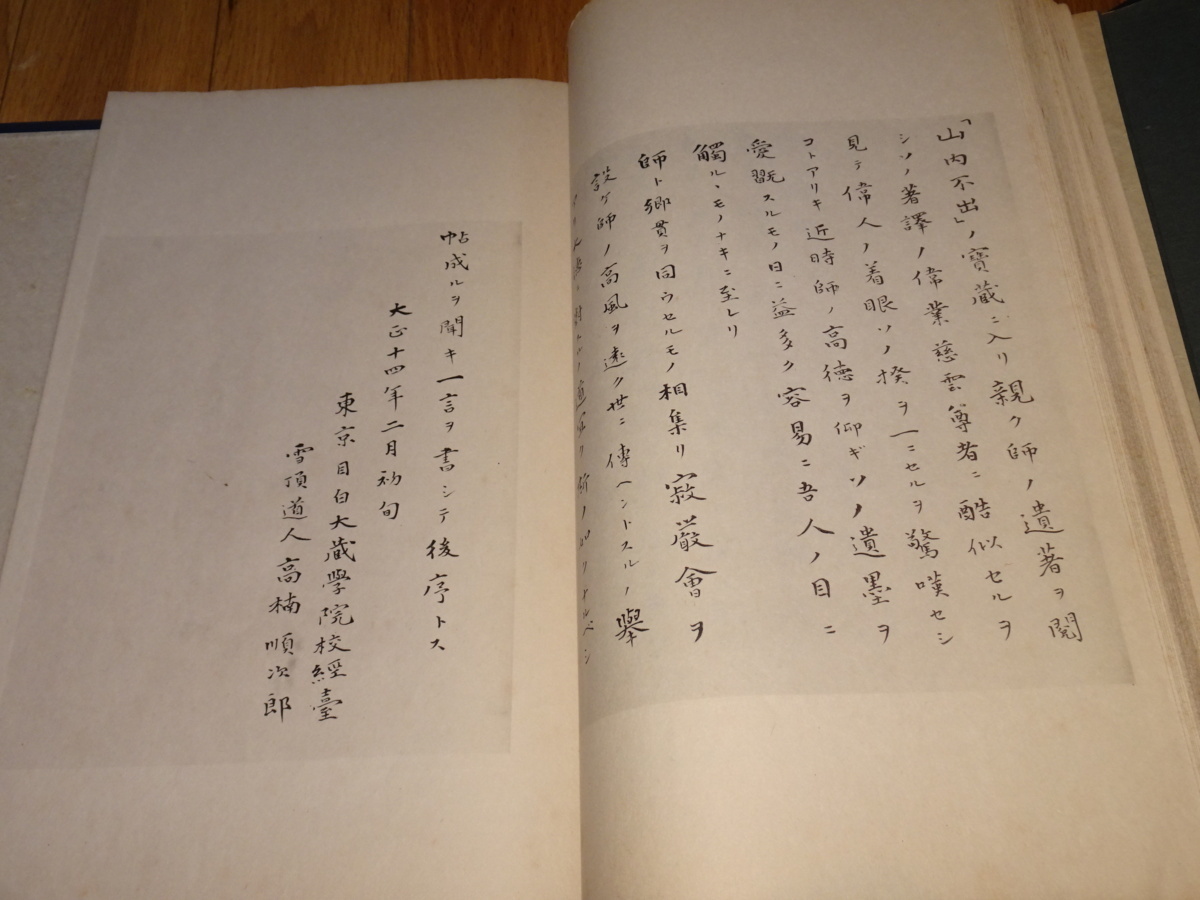 「山内不出」ノ寶蔵ニ入リ親ク師ノ遺著ヲ閲
シソノ著譯ノ偉業慈雲尊者ニ酷似セルヲ
見テ偉人ノ着眼ソノ揆ヲ一ニセルヲ驚嘆セシ
コトアリキ近時師ノ高徳ヲ仰ギソノ遺墨ヲ
愛翫スルモノ日ニ益多ク容易ニ吾人ノ目ニ
觸ルヽモノナキニ至レリ
師ト郷貫ヲ同ウセルモノ相集リ寂嚴會ヲ
設ケ師ノ高風ヲ遠ク世ニ傳ヘントスルノ擧
帖成ルヲ聞キ一言ヲ書シテ後序トス
大正十四年二月初旬
東京目白大蔵學院校經臺
雪頂道人高楠順次郎